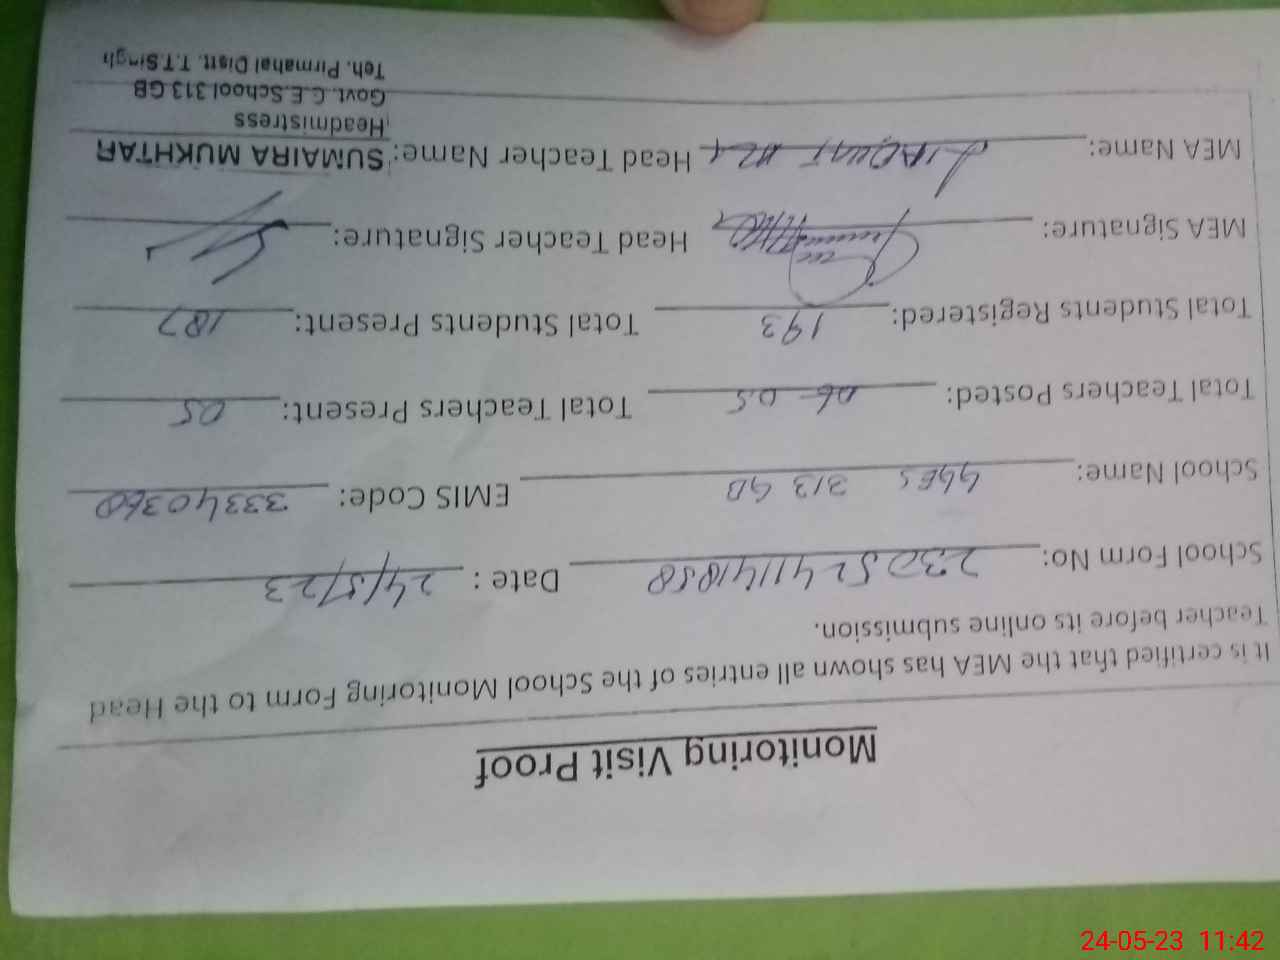 Monitoring Visit Proof
It is certified that the MEA has shown all entries of the School Monitoring Form to the Head
Teacher before its online submission.
School Form No: 2305241141858 Date: 24/5/23
School Name: GGES 313 GB EMIS Code: 33340360
Total Teachers Posted: 06 05 Total Teachers Present: 05
Total Students Registered: 193 Total Students Present: 187
MEA Signature: Head Teacher Signature:
MEA Name: LIAQUAT Head Teacher Name: SUMAIRA MUKHTAR
Headmistress
Govt. G.E.School 313 GB
Teh. Pirmahal Distt. T.T.Singh
24-05-23 11:42